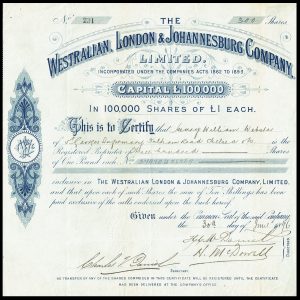 No. 231 THE 300 Shares
WESTRALIAN, LONDON & JOHANNESBURG COMPANY,
LIMITED.
INCORPORATED UNDER THE COMPANIES ACTS 1862 TO 1893.
CAPITAL £100,000
IN 100,000 SHARES OF £1 EACH.
This is to Certify that George William Webster
of
Registered Proprietor of Three hundred Shares of
One Pound each Nos.
inclusive in THE WESTRALIAN LONDON & JOHANNESBURG COMPANY, LIMITED,
and that upon each of such Shares the sum of Ten Shillings has been
paid exclusive of the calls endorsed upon the back hereof.
Given under the Common Seal of the said Company
the 30th of June 1896
Secretary
NO TRANSFER OF ANY OF THE SHARES COMPRISED IN THIS CERTIFICATE WILL BE REGISTERED UNTIL THE CERTIFICATE
HAS BEEN DELIVERED AT THE COMPANY'S OFFICE